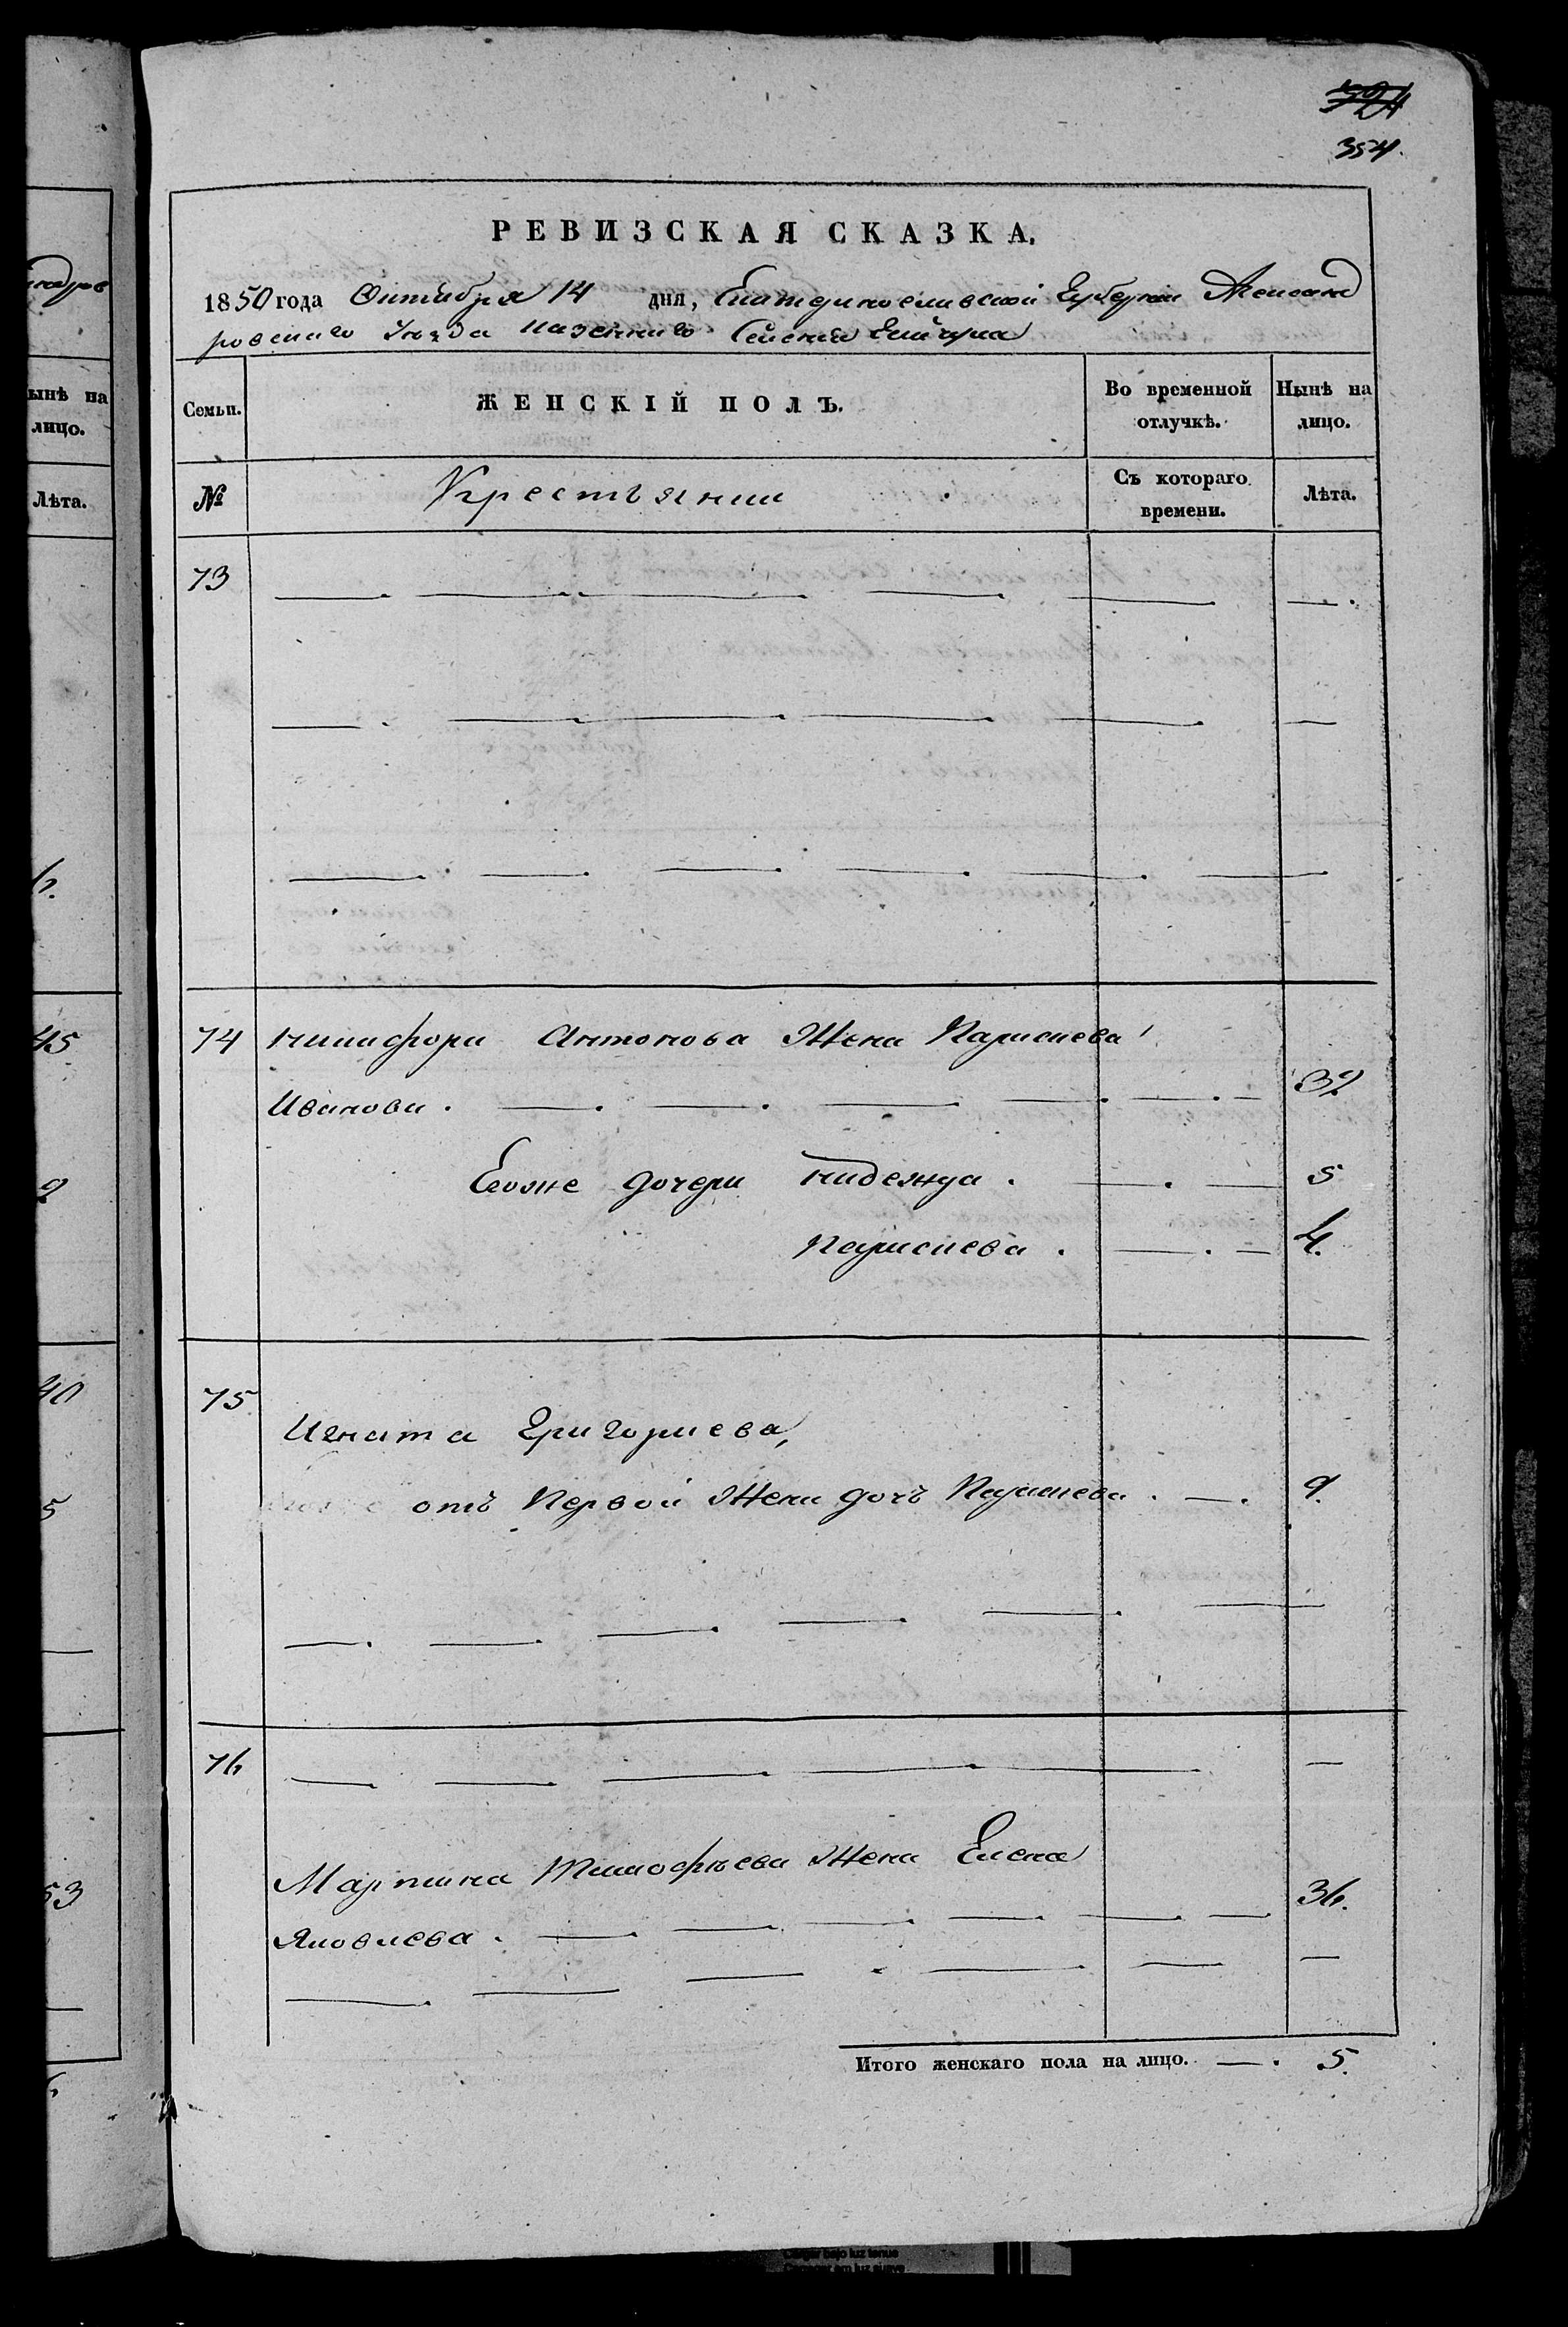 354.
РЕВИЗСКАЯ СКАЗКА.
1850 года Октября 14 дня, Екатеринославской Губернии Александ
ровскаго Уезда казеннаго Селения
Семьи. ЖЕНСКІЙ ПОЛЪ. Во временной отлучкѣ. Нынѣ на лицо.
№ Крестьянии Съ котораго времени. Лѣта.
73
74 Никифора Антонова Жена Параскева
Иванова. 32
Егоже дочери Надежда. 5
Параскева. 4.
75
Игната Григориева,
Егоже отъ Первой Жены дочь Параскева. 9.
76
Мартина Тимофѣева Жена Елена
Яковлева. 36.
Итого женскаго пола на лицо. 5.
ндров
ынѣ на
лицо.
Лѣта.
6.
45
9
40
5
53